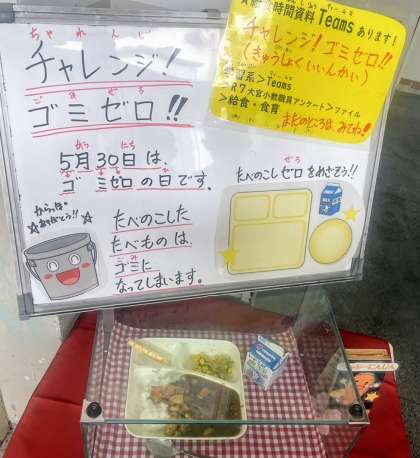 ちゃれんじ
チャレンジ!
ごみぜろ
ゴミゼロ!!
がつ にち
5月30日は、
ごみぜろ
ゴミゼロの日です。
からっぽ
ありがとう!!
たべのこした
たべものは、
ごみ
ゴミに
なってしまいます。
時間資料 Teams あります!
チャレンジ!ゴミゼロ!
(きゅうしょくいいんかい)
系>Teams
R7大宮小教職員アンケート>ファイル
>給食・食育
まだのところは みてね!
ぜろ
たべのこしゼロをめざそう!!